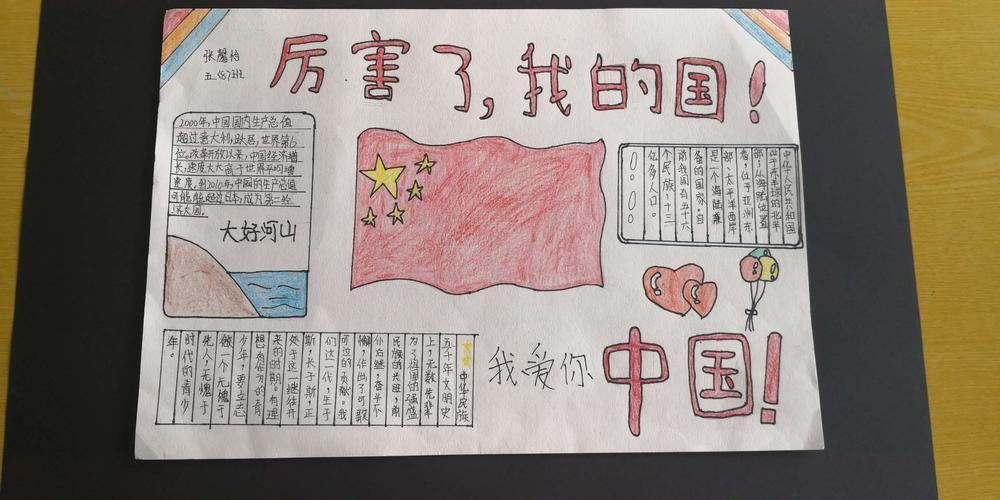 张馨怡
五(8)班
厉害了,我的国!
2000年,中国国内生产总值
超过意大利,跃居世界第6
位。改革开放以来,中国经济增
长速度大大高于世界平均增
长速度。到2010年,中国的生产总值
可能能超过日本,成为第二经
济大国。
大好河山
中华人民共和国
位于东半球的北半
部;从海陆位置
看,位于亚洲东
部、太平洋西岸
是一个海陆兼
备的国家。目
前我国有五十六
个民族,十三
亿多人口。
中华民族
五千年文明史
上,无数先辈
为了祖国的强盛
民族的兴旺,前
仆后继,奋斗不
懈,作出了可歌
可泣的贡献。我
们这一代,生于
斯,长于斯,正
处于这一继往开
来的时期。有理
想有作为的青
少年,要立志
做一个无愧于
先人,无愧于
时代的青少
年。
我爱你
中国!